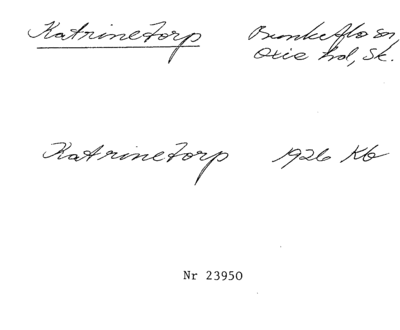 Katrinetorp Bunkeflo sn,
Oxie hd, Sk.
Katrinetorp 1926 Kb
Nr 23950